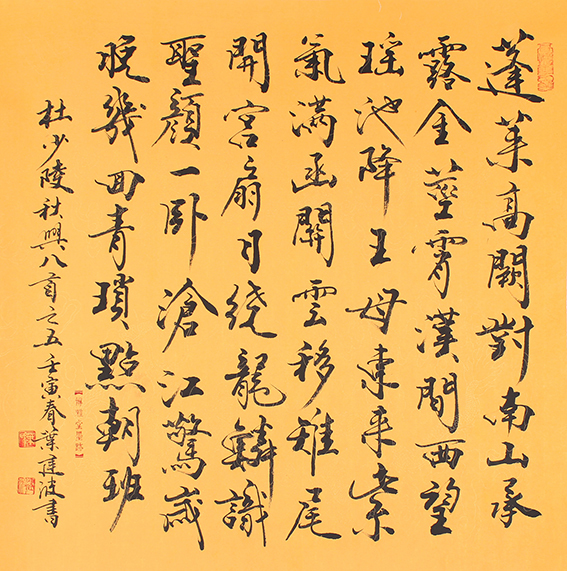 蓬莱高闕對南山承
露金莖霄漢間西望
瑶池降王母東来紫
氣滿函關雲移雉尾
開宫扇日繞龍鱗識
聖顏一卧滄江驚歲
晚幾回青瑣點朝班
杜少陵秋興八首之五壬寅春葉建波書